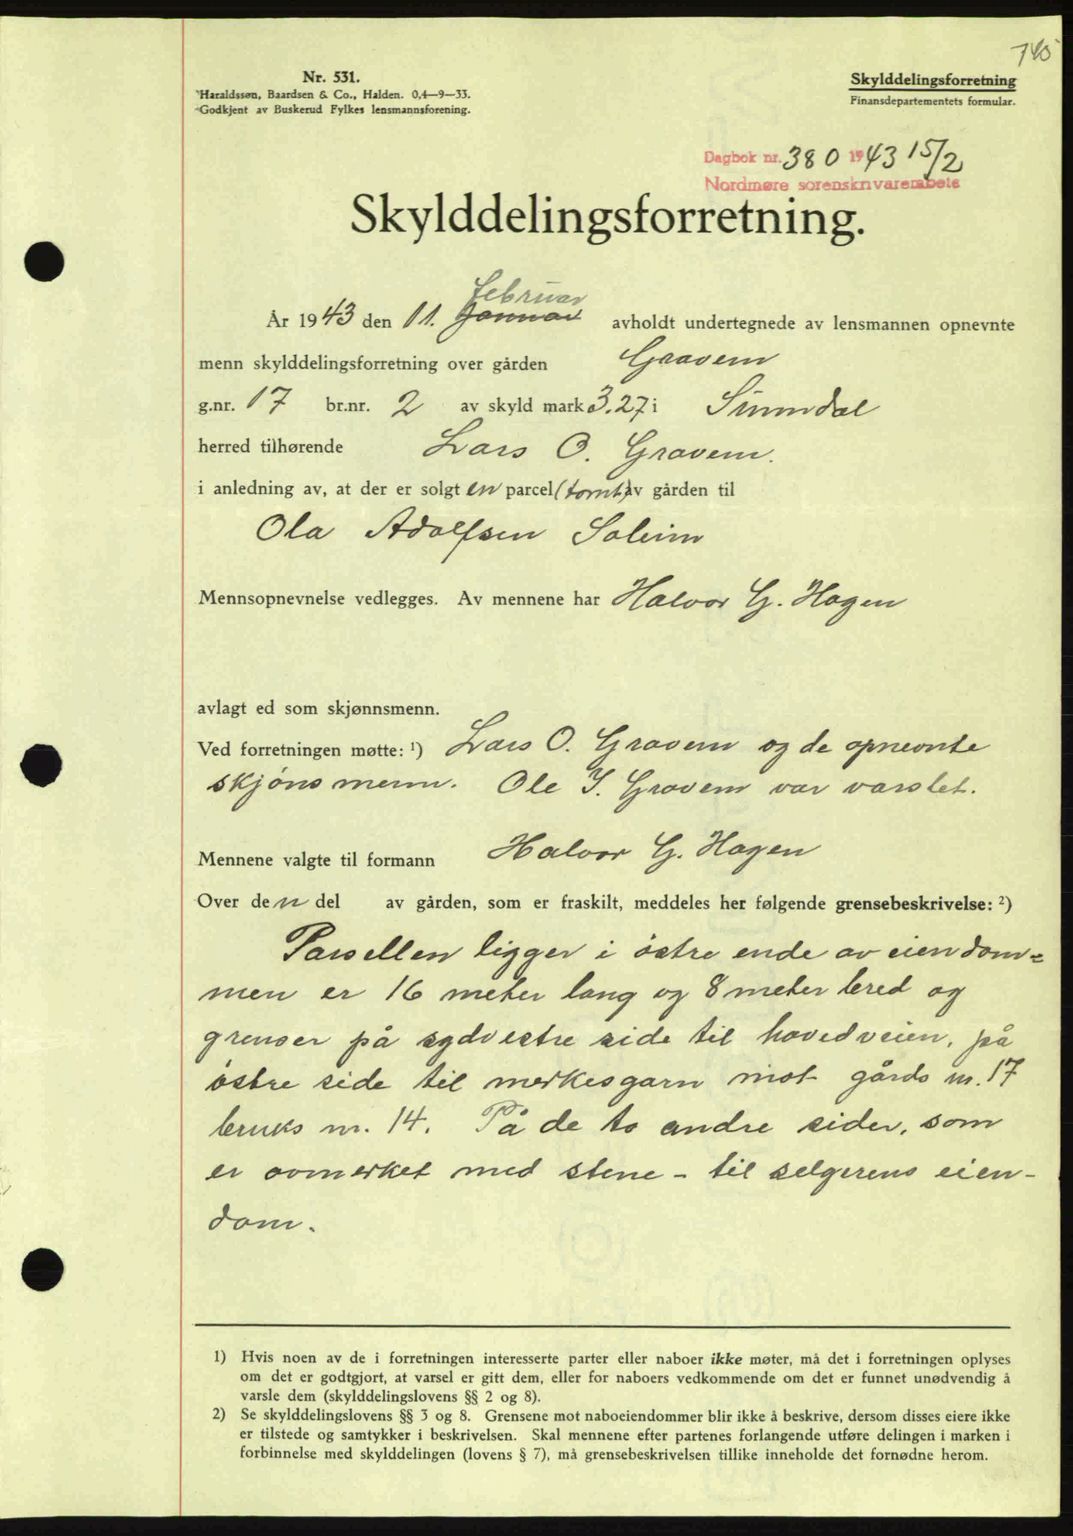 745
Nr. 531.
Haraldssøn, Baardsen & Co., Halden. 0,4—9—33.
Godkjent av Buskerud Fylkes lensmannsforening.
Skylddelingsforretning
Finansdepartementets formular.
Dagbok nr. 380 1943 15/2
Nordmøre sorenskriverembete
Skylddelingsforretning.
februar
År 1943 den 11. Januar avholdt undertegnede av lensmannen opnevnte
menn skylddelingsforretning over gården Gravem
g.nr. 17 br.nr. 2 av skyld mark 3.27 i Sunndal
herred tilhørende Lars O. Gravem.
i anledning av, at der er solgt en parcel (tomt) av gården til
Ola Adolfsen Soleim
Mennsopnevnelse vedlegges. Av mennene har Halvor G. Hagen
avlagt ed som skjønnsmenn.
Ved forretningen møtte: ¹) Lars O. Gravem og de opnevnte
skjøns menn. Ole I. Gravem var varslet.
Mennene valgte til formann Halvor G. Hagen
Over den del av gården, som er fraskilt, meddeles her følgende grensebeskrivelse: ²)
Parsellen ligger i østre ende av eiendom=
men er 16 meter lang og 8 meter bred og
grenser på sydvestre side til hovedveien, på
østre side til merkesgarn mot gårds nr. 17
bruks nr. 14. På de to andre sider, som
er avmerket med stene - til selgerens eien-
dom.
1) Hvis noen av de i forretningen interesserte parter eller naboer ikke møter, må det i forretningen oplyses
om det er godtgjort, at varsel er gitt dem, eller for naboers vedkommende om det er funnet unødvendig å
varsle dem (skylddelingslovens §§ 2 og 8).
2) Se skylddelingslovens §§ 3 og 8. Grensene mot naboeiendommer blir ikke å beskrive, dersom disses eiere ikke
er tilstede og samtykker i beskrivelsen. Skal mennene efter partenes forlangende utføre delingen i marken i
forbinnelse med skylddelingen (lovens § 7), må grensebeskrivelsen tillike inneholde det fornødne herom.